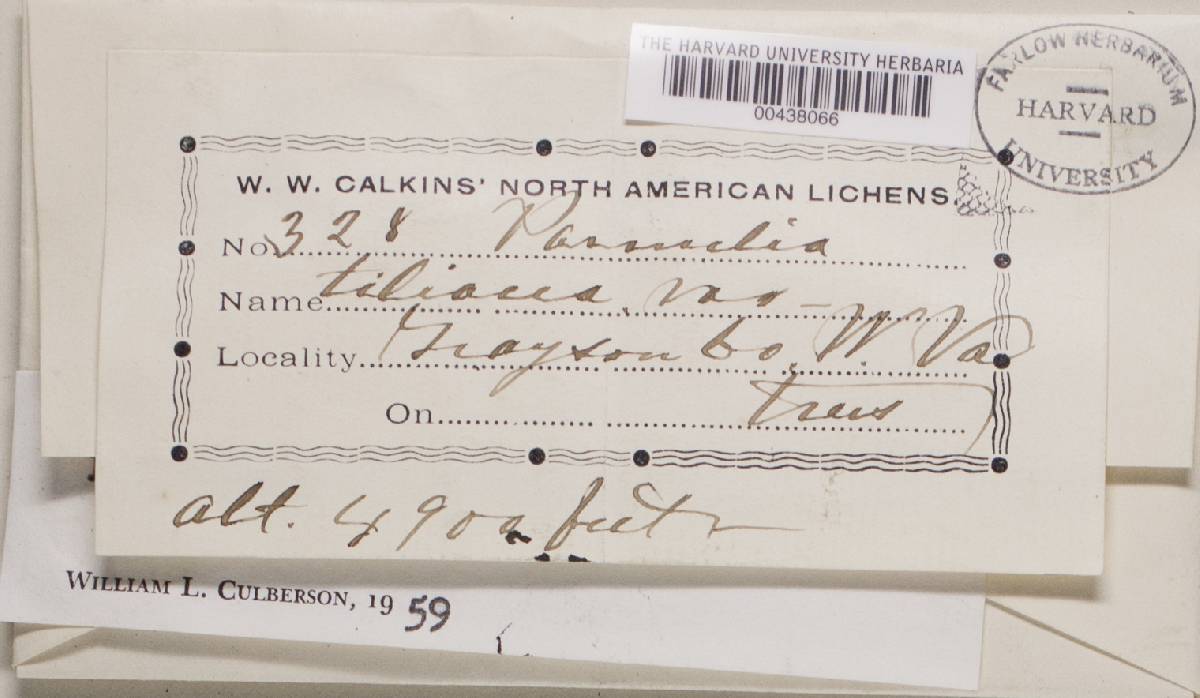 THE HARVARD UNIVERSITY HERBARIA
00438066
FARLOW HERBARIUM
HARVARD
UNIVERSITY
W. W. CALKINS' NORTH AMERICAN LICHENS.
No 328 Parmelia
Name tiliacea, var -
Locality Grayson Co, W. Va
On trees
alt. 4900 feet
WILLIAM L. CULBERSON, 1959